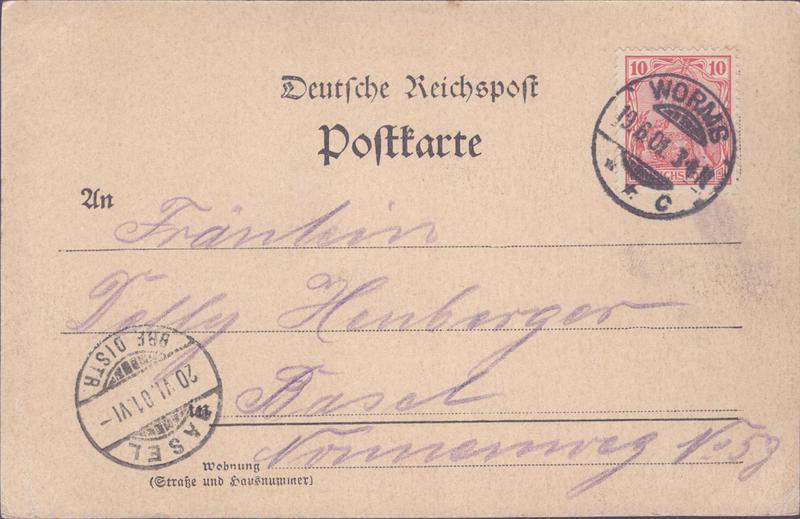 Deutsche Reichspost
Postkarte
10 10
WORMS
19.6.01. 3-4 N
* * C
REICHSPOST
An
Fräulein
Delly Henberger
Basel
Nonnenweg No 52
BASEL
20.VI.01.VI-
BRF. DISTR.
in
Wohnung
(Straße und Hausnummer)